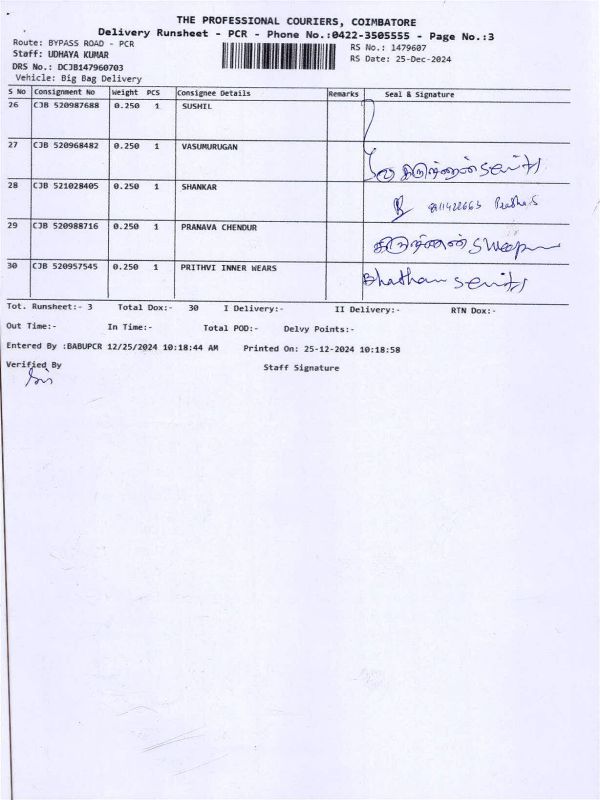 THE PROFESSIONAL COURIERS, COIMBATORE
Delivery Runsheet - PCR - Phone No.:0422-3505555 - Page No.:3
Route: BYPASS ROAD - PCR
RS No.: 1479607
Staff: UDHAYA KUMAR
RS Date: 25-Dec-2024
DRS No.: DCJB147960703
Vehicle: Big Bag Delivery
S No Consignment No Weight PCS Consignee Details Remarks Seal & Signature
26 CJB 520987688 0.250 1 SUSHIL
27 CJB 520968482 0.250 1 VASUMURUGAN
28 CJB 521028405 0.250 1 SHANKAR
29 CJB 520988716 0.250 1 PRANAVA CHENDUR
30 CJB 520957545 0.250 1 PRITHVI INNER WEARS
Tot. Runsheet:- 3 Total Dox:- 30 I Delivery:- II Delivery:- RTN Dox:-
Out Time:- In Time:- Total POD:- Delvy Points:-
Entered By :BABUPCR 12/25/2024 10:18:44 AM Printed On: 25-12-2024 10:18:58
Verified By Staff Signature